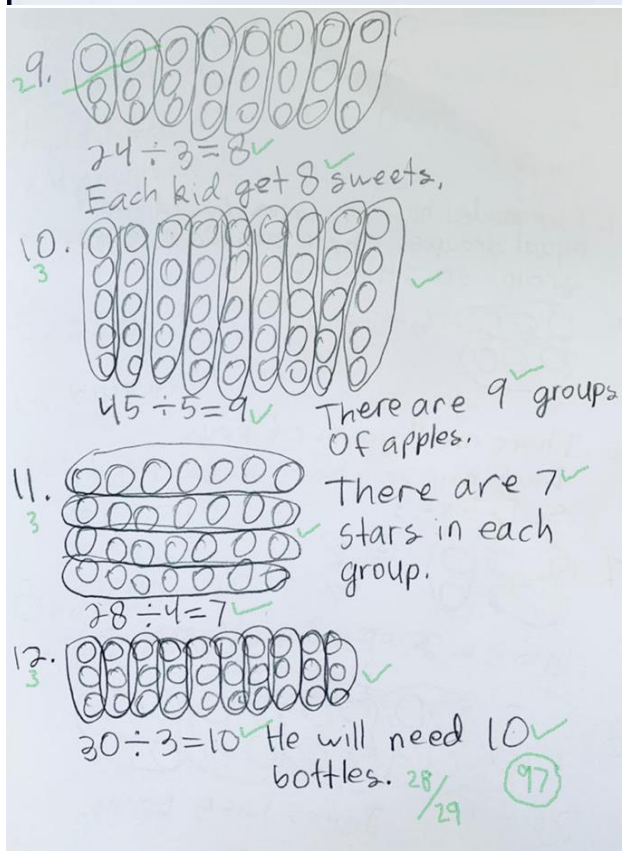 9.
2
24÷3=8✓
Each kid get 8 sweets.
10.
3
45÷5=9✓
There are 9 groups
Of apples.
11.
3
There are 7
stars in each
group.
28÷4=7✓
12.
3
30÷3=10✓ He will need 10
bottles.
28/29
97